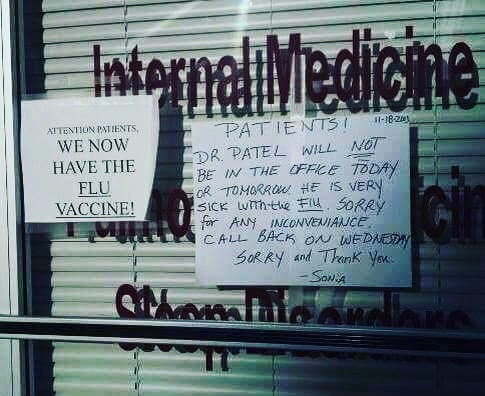 Internal Medicine
ATTENTION PATIENTS,
WE NOW
HAVE THE
FLU
VACCINE!
11-18-2013
PATIENTS!
DR. PATEL WILL NOT
BE IN THE OFFICE TODAY
OR TOMORROW. HE IS VERY
SICK WITH the FlU. SORRY
for ANY INCONVENIANCE.
CALL BACK ON WEDNESDAY
SORRY and Thank You.
- SONiA
Sleep Disorders